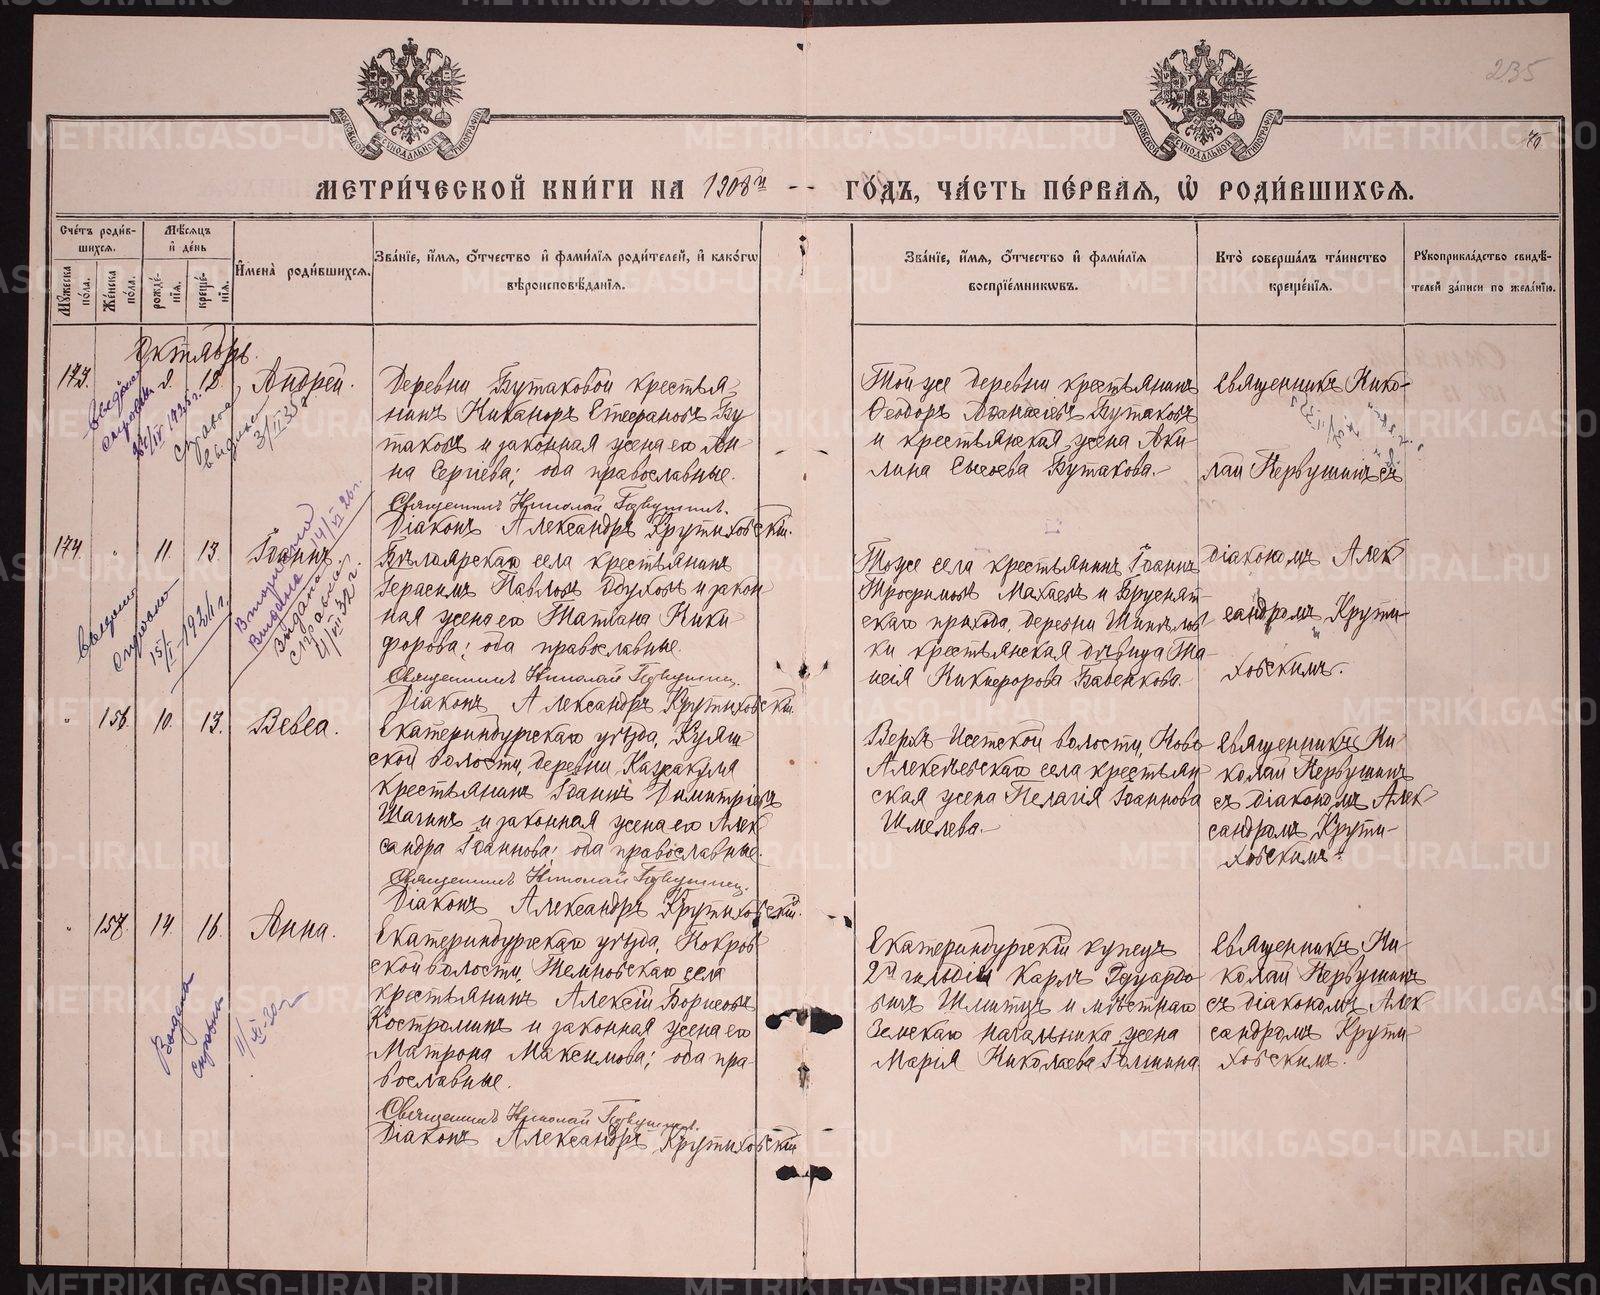 235
70
МОСКОВСКОЙ СѴНОДАЛЬНОЙ ТИПОГРАФІИ
МОСКОВСКОЙ СѴНОДАЛЬНОЙ ТИПОГРАФІИ
МЕТРИ́ЧЕСКОЙ КНИ́ГИ НА 1908й -- ГО́ДЪ, ЧА́СТЬ ПЕ́РВАѦ, Ѡ҆ РОДИ́ВШИХСѦ.
Сче́тъ роди́в-
шихсѧ.
Мꙋжеска по́ла.
Же́нска по́ла.
Мѣ́сѧцъ
и҆ де́нь
рожде́-
нїѧ.
креще́-
нїѧ.
И҆мена̀ роди́вшихсѧ.
Зва́нїе, и҆́мѧ, ѻ҆́тчество и҆ фами́лїѧ роди́телей, и҆ како́гѡ
вѣроисповѣ́данїѧ.
Зва́нїе, и҆́мѧ, ѻ҆́тчество и҆ фами́лїѧ
воспрїе́мникѡвъ.
Кто̀ соверша́лъ та́инство
креще́нїѧ.
Рꙋкоприкла́дство свидѣ́-
телей за́писи по жела́нїю.
Октябрь.
173. 9. 12. Андрей.
Деревни Бутаковой крестья-
нинъ Никаноръ Стефановъ Бу
таковъ и законная жена его Ан
на Сергіева; оба православные.
Священникъ Николай Первушинъ.
Діаконъ Александръ Крутиховскій.
Той же деревни крестьянинъ
Ѳеодоръ Аѳанасіевъ Бутаковъ
и крестьянская жена Аки
лина Сысоева Бутакова.
Священникъ Нико-
лай Первушинъ съ
Справка
выдана
3/II 35 г
174. " 11. 13. Іоаннъ.
Бѣлоярскаго села крестьянинъ
Герасимъ Павловъ и закон
ная жена его Татіана Ники
форова; оба православные.
Священникъ Николай Первушинъ.
Діаконъ Александръ Крутиховскій.
Тоже села крестьянинъ Іоаннъ
Трофимовъ и Бруснят-
скаго прихода, деревни
ки крестьянская дѣвица Та-
исія Никифорова Бабенкова.
діакономъ Алек
сандромъ Крути-
ховскимъ.
15/I 1921 г.
Вторичная
Выдана 14/VI 20 г.
Выдана
справка
4/VII 32 г.
" 156. 10. 13. Вевеа.
Екатеринбургскаго уѣзда, Куяш
ской волости, деревни Казракуля
крестьянинъ Іоаннъ Димитріевъ
Шагинъ и законная жена его Алек
сандра Іоаннова; оба православные.
Священникъ Николай Первушинъ.
Діаконъ Александръ Крутиховскій.
Верхъ-Исетской волости, Ново
Алексѣевскаго села крестьян
ская жена Пелагія Іоаннова
Шмелева.
Священникъ Ни
колай Первушинъ
съ діакономъ Алек
сандромъ Крути-
ховскимъ.
" 157. 14. 16. Анна.
Екатеринбургскаго уѣзда, Покров
ской волости, Темновскаго села
крестьянинъ Алексій Борисовъ
Костроминъ и законная жена его
Матрона Максимова; оба пра
вославные.
Священникъ Николай Первушинъ.
Діаконъ Александръ Крутиховскій
Екатеринбургскій купецъ
2й гильдіи Карлъ Эдуардо
вичъ Шлитцъ и мѣстнаго
Земскаго начальника жена
Марія Николаева
Священникъ Ни
колай Первушинъ
съ діакономъ Алек
сандромъ Крути
ховскимъ.
Выдана
справка
11/XI-30 г
METRIKI.GASO-URAL.RU